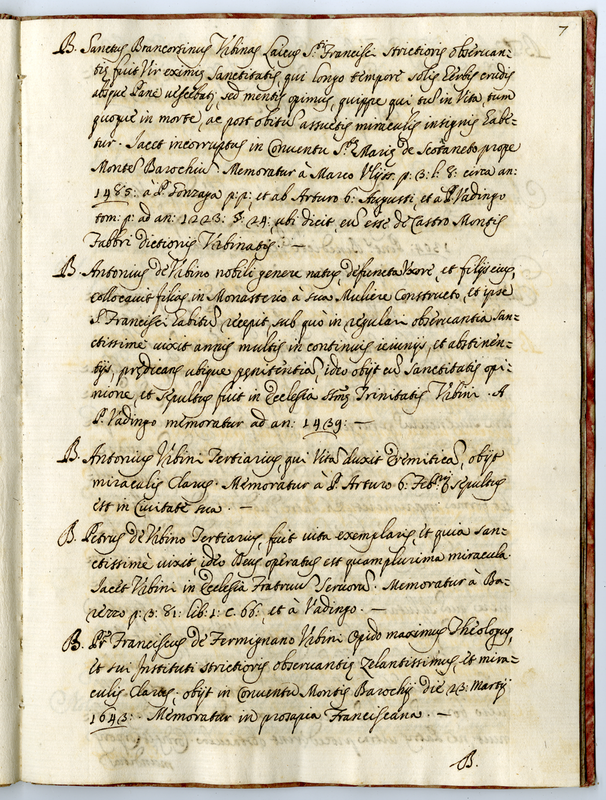 7
B. Sanctus Brancorsinus Urbinas Laicus S.ti Francisci strictioris observan=
tię fuit Vir eximię Sanctitatis, qui longo tempore solis herbis crudis
absque Pane vescebatr, sed mentis opimus, quippe qui tū in Vita, tum
quoque in morte, ac post obitū assuetis miraculis insignis habe=
tur. Iacet incorruptus in Conventu S.tę Marię de Scotaneto prope
Monte Barochiū. Memoratur à Marco Ulyss. p: 3: l: 8: circa an:
1485: à P. Gonzaga p: p: et ab Arturo 6: Augusti, et à P. Vadingo
tom: p: ad an: 1223: §: 24: ubi dicit eū esse de Castro Montis
Fabbri dictionis Urbinatis. —
B. Antonius de Urbino nobili genere natus, defuncta Uxore, et filijs eius,
collocavit filias in Monasterio à sua Muliere Constructo, et ipse
S. Francisci habitū recepit, sub quo in regulari observantia san=
ctissime vixit annis multis in continuis ieiunijs, et abstinen=
tijs, prędicans ubique pęnitentiā, ideo obijt cū Sanctitatis opi=
nione, et sepultus fuit in Ecclesia Ssmę Trinitatis Urbini. A
P. Vadingo memoratur ad an: 1439: —
B. Antonius Urbini Tertiarius, qui Vitā duxit Eremiticā, obijt
miraculis Clarus. Memoratur à P. Arturo 6: Feb.rij sepultus
est in Civitate sua. —
B. Petrus de Urbino Tertiarius, fuit vita exemplaris, et quia san=
ctissime vixit ideo Deus operatus est quamplurima miracula.
Iacet Urbini in Ecclesia Fratruū Servorū. Memoratur à Ba=
rezzo p: 3: 81: lib: 1: c. 66: et à Vadingo. —
B. Pr. Franciscus de Fermignano Urbini Opido maximus Theologus,
et sui Instituti strictioris observantię zelantissimus et mira=
culis Clarus. obijt in Conventu Montis Barochij die 23: Martij
1643: Memoratur in prosapia Franciscana. —
B.